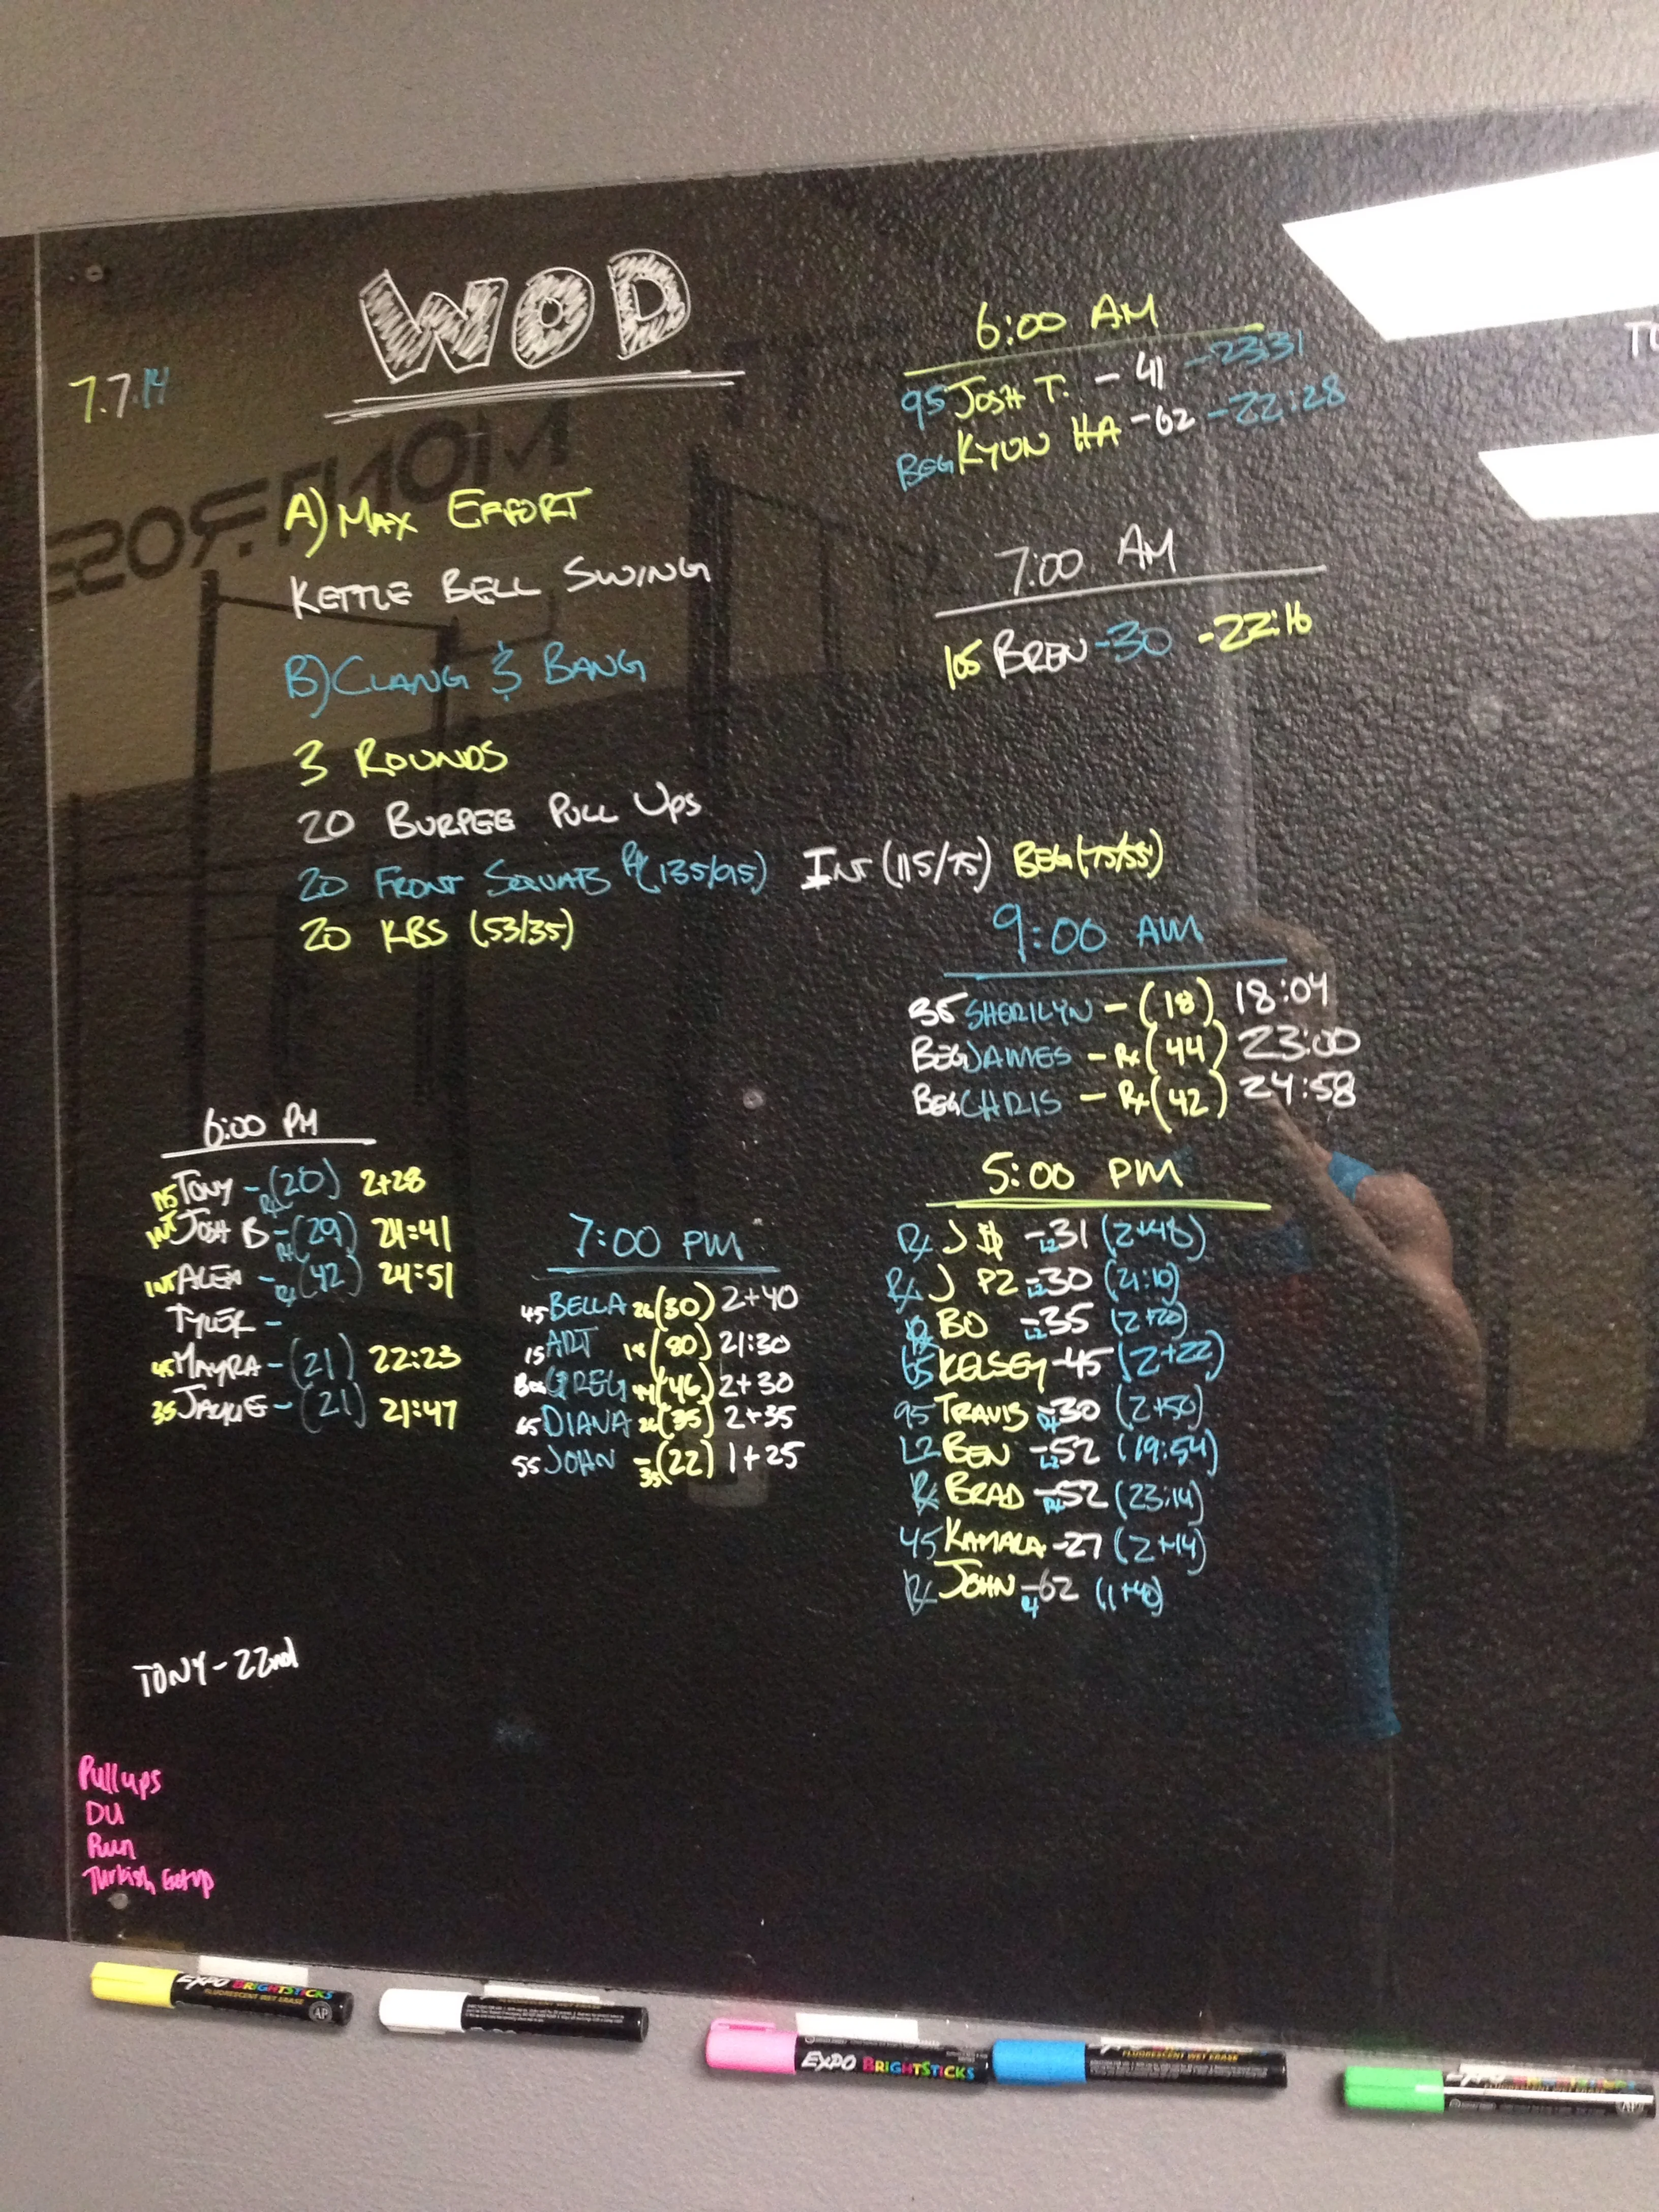 WOD
7.7.14
A) MAX EFFORT
KETTLE BELL SWING
B) CLANG & BANG
3 ROUNDS
20 BURPEE PULL UPS
20 FRONT SQUATS RX (135/95) INT (115/75) BEG (75/55)
20 KBS (53/35)
6:00 AM
95 JOSH T. - 41 - 23:31
BEG KYUN HA - 62 - 22:28
7:00 AM
105 BREN - 30 - 22:16
9:00 AM
35 SHERILYN - (18) 18:04
BEG JAMES - Rx (44) 23:00
BEG CHRIS - Rx (42) 24:58
5:00 PM
Rx J $ - L2 31 (2+48)
Rx J PZ - L2 30 (21:10)
Rx BO - L2 35 (2+20)
65 KELSEY - 45 (2+22)
95 TRAVIS - Rx 30 (2+50)
L2 BEN - L2 52 (19:54)
Rx BRAD - Rx 52 (23:14)
45 KAMALA - 27 (2+14)
Rx JOHN - Rx 62 (1+40)
6:00 PM
115 TONY - Rx (20) 2+28
INT JOSH B - Rx (29) 21:41
INT ALEX - Rx (42) 24:51
TYLER -
45 MAYRA - (21) 22:23
35 JACKIE - (21) 21:47
7:00 PM
45 BELLA 26 (30) 2+40
15 ART 18 (80) 21:30
BEG GREG 44 (46) 2+30
65 DIANA 26 (35) 2+35
55 JOHN - 35 (22) 1+25
TONY - 22nd
Pull ups
DU
Run
Turkish Getup
EXPO BRIGHTSTICKS
FLUORESCENT WET ERASE
AP
EXPO BRIGHTSTICKS
FLUORESCENT WET ERASE